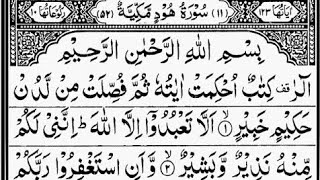 اٰیَاتُهَا ۱۲۳ (۱۱) سُوْرَةُ هُوْدٍ مَّكِّيَّةٌ (۵۲) رُكُوْعَاتُهَا ۱۰
بِسْمِ اللّٰهِ الرَّحْمٰنِ الرَّحِيْمِ
الٓرٰ قف كِتٰبٌ اُحْكِمَتْ اٰيٰتُهٗ ثُمَّ فُصِّلَتْ مِنْ لَّدُنْ
حَكِيْمٍ خَبِيْرٍ ۝۱ اَلَّا تَعْبُدُوْۤا اِلَّا اللّٰهَ ؕ اِنَّنِيْ لَكُمْ
مِّنْهُ نَذِيْرٌ وَّبَشِيْرٌ ۝۲ وَّاَنِ اسْتَغْفِرُوْا رَبَّكُمْ